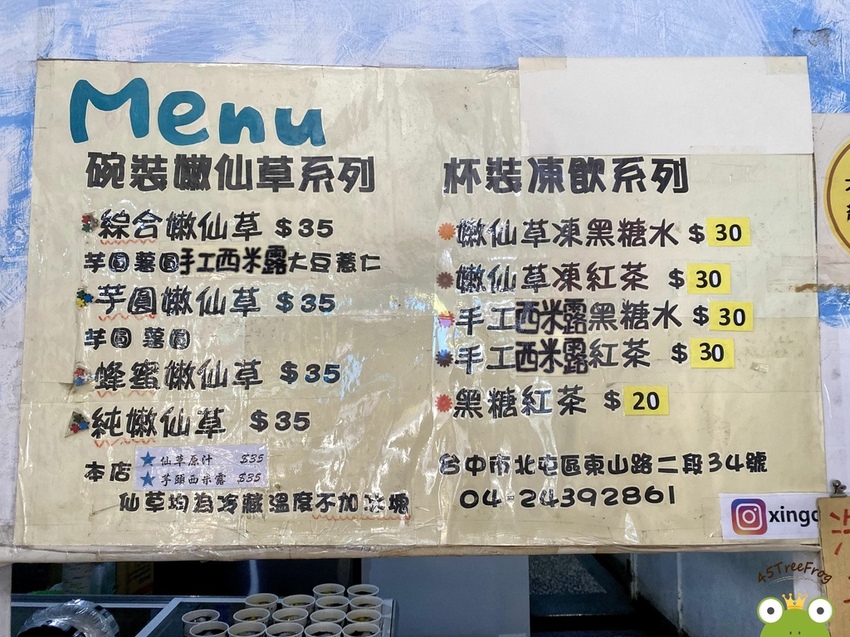 Menu
碗裝嫩仙草系列
綜合嫩仙草 $35
芋圓薯圓手工西米露大豆薏仁
芋圓嫩仙草 $35
芋圓 薯圓
蜂蜜嫩仙草 $35
純嫩仙草 $35
本店
仙草原汁 $35
芋頭西米露 $35
仙草均為冷藏溫度不加冰塊
杯裝凍飲系列
嫩仙草凍黑糖水 $30
嫩仙草凍紅茶 $30
手工西米露黑糖水 $30
手工西米露紅茶 $30
黑糖紅茶 $20
台中市北屯區東山路二段34號
04-24392861
xingc
45TreeFrog